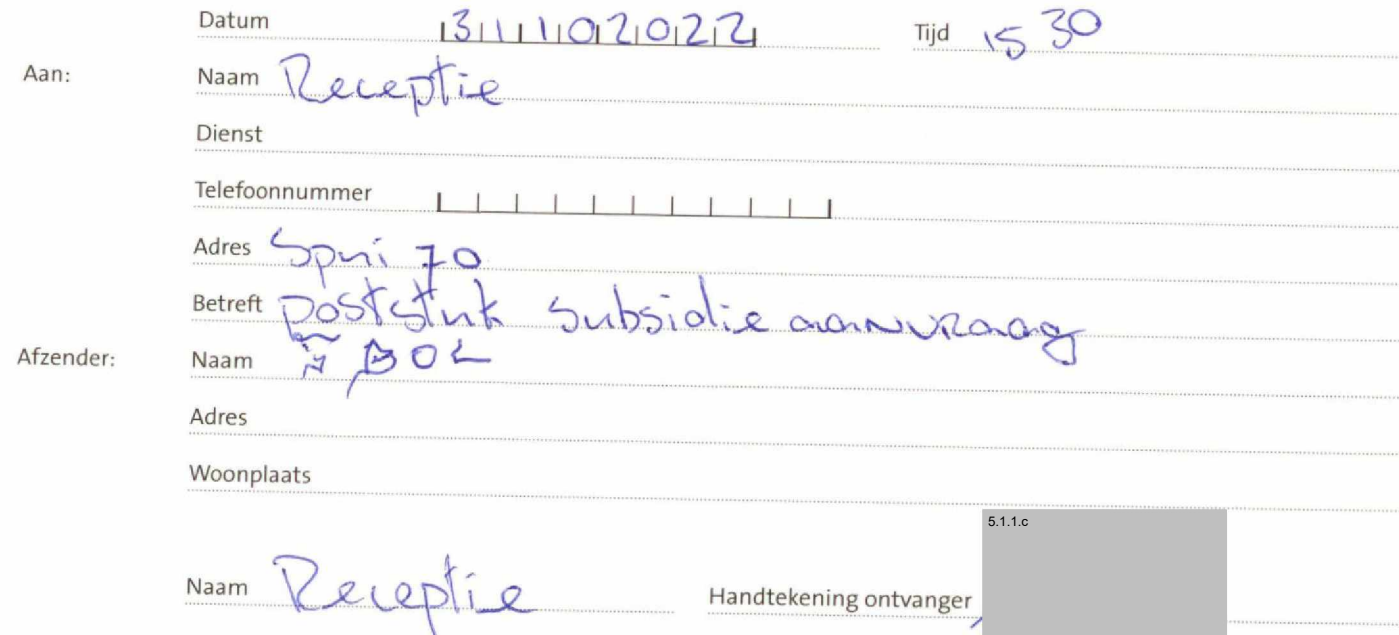 Datum 31102022 Tijd 15 30
Aan: Naam Receptie
Dienst
Telefoonnummer
Adres Spui 70
Betreft poststuk subsidie aanvraag
Afzender: Naam BOL
Adres
Woonplaats
5.1.1.c
Naam Receptie Handtekening ontvanger